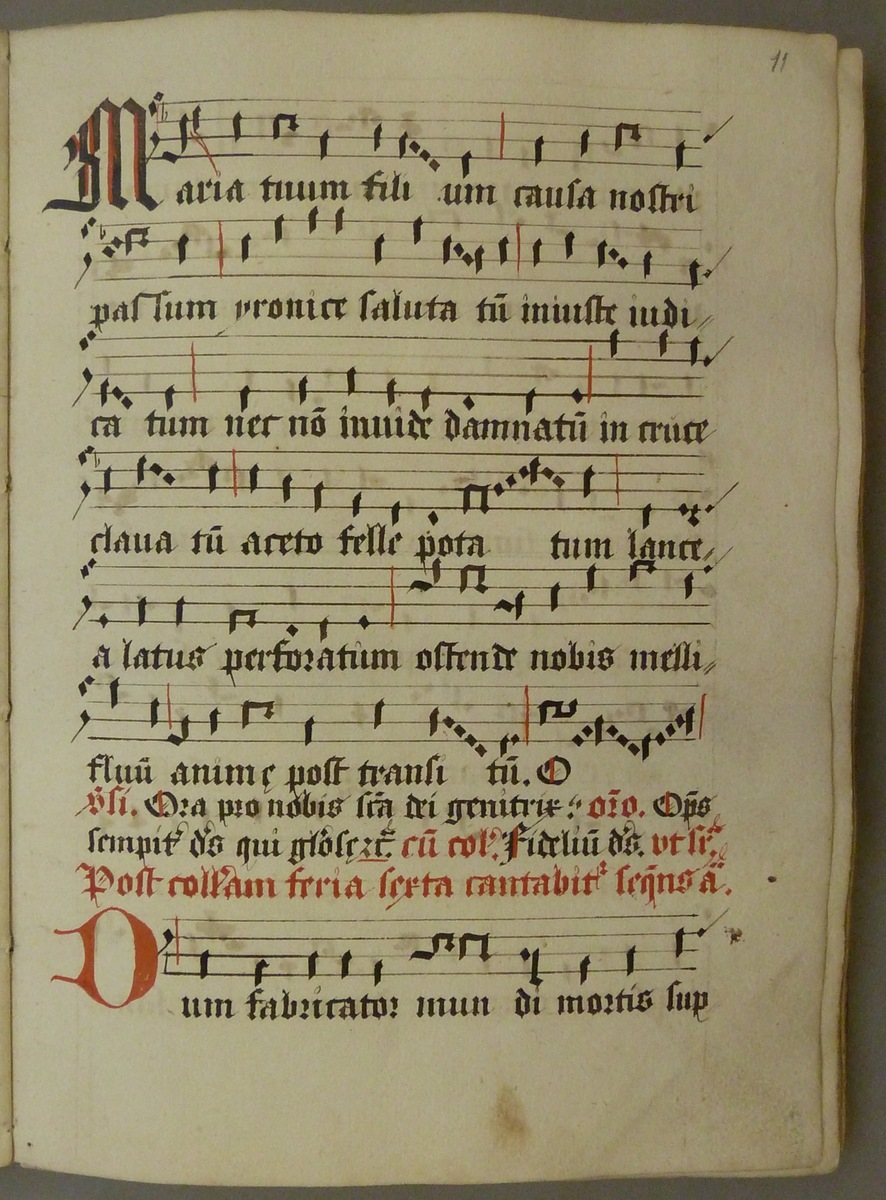 11
Maria tuum fili um causa nostri
passum yronice saluta tū iniuste iudi
ca tum nec nō inuide damnatū in cruce
claua tū aceto felle pota tum lance
a latus perforatum ostende nobis melli
fluū anime post transi tū. O
v̄si. Ora pro nobis scā dei genitrix: orō. Op̄s
sempit' d's qui glōse cū col' Fideliū d's. vt sr̄
Post coll'am feria sexta cantabit' seq̄ns a
Dum fabricator mun di mortis sup